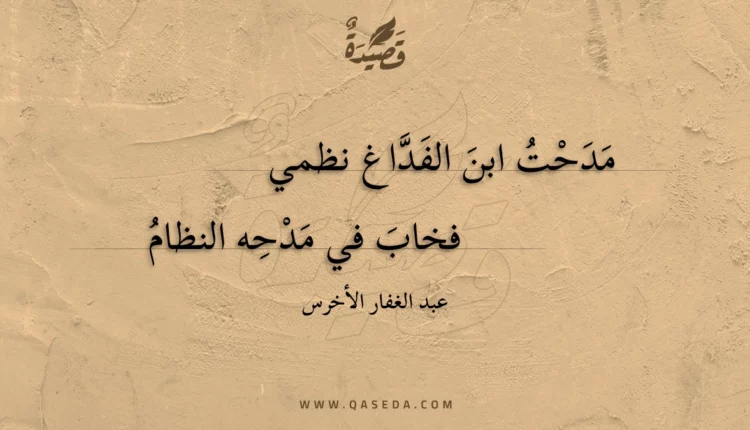 قَصِيْدَةٌ
مَدَحْتُ ابنَ الفَدَّاغ نظمي
فخابَ في مَدْحِه النظامُ
عبد الغفار الأخرس
WWW.QASEDA.COM